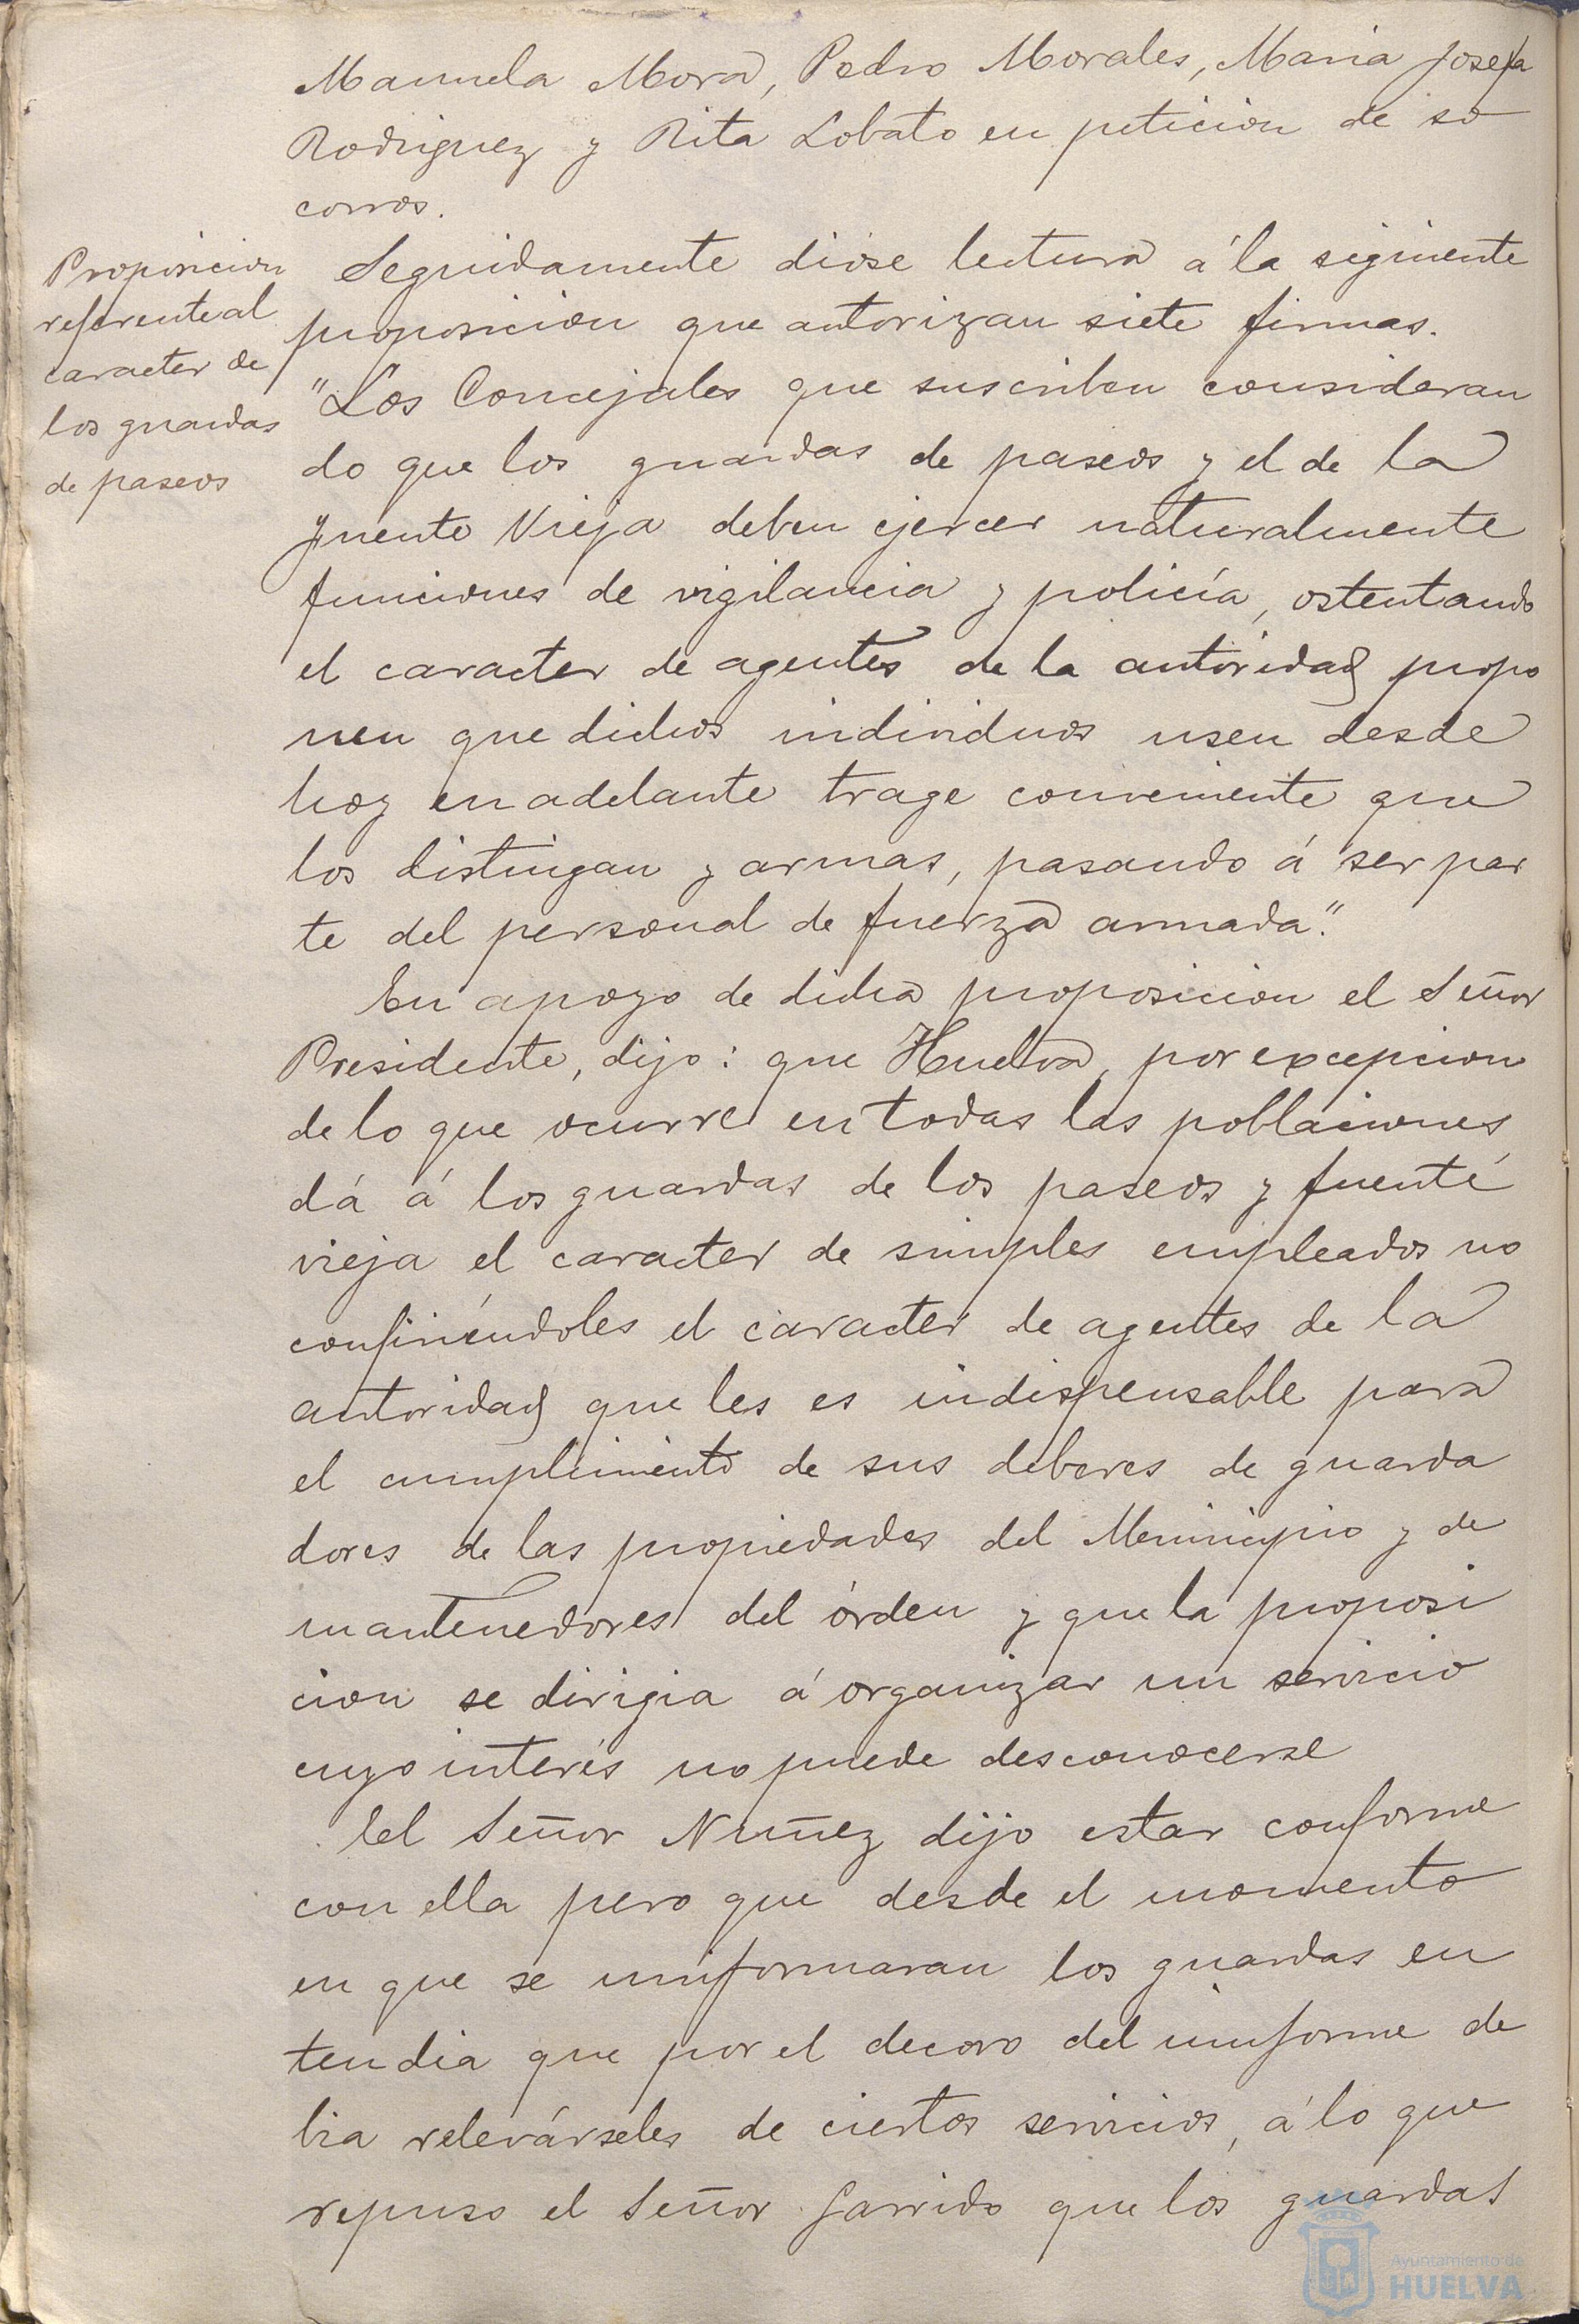 Manuela Mora, Pedro Morales, Maria Josefa
Rodriguez y Rita Lobato en peticion de so
corros.
Proposicion
referente al
caracter de
los guardas
de paseos
Seguidamente dióse lectura á la siguiente
proposicion que autorizan siete firmas.
"Los Concejales que suscriben consideran
do que los guardas de paseos y el de la
Fuente Vieja deben ejercer naturalmente
funciones de vigilancia y policía, ostentando
el caracter de agentes de la autoridad propo
nen que dichos individuos usen desde
hoy en adelante trage conveniente que
los distingan y armas, pasando á ser par
te del personal de fuerza armada."
En apoyo de dicha proposicion el Señor
Presidente, dijo: que Huelva, por excepcion
de lo que ocurre en todas las poblaciones,
dá á los guardas de los paseos y fuente
vieja el caracter de simples empleados no
confiriéndoles el caracter de agentes de la
autoridad que les es indispensable para
el cumplimiento de sus deberes de guarda
dores de las propiedades del Municipio y de
mantenedores del órden y que la proposi
cion se dirigia á organizar un servicio
cuyo interés no puede desconocerse
El Señor Nuñez dijo estar conforme
con ella pero que desde el momento
en que se uniformaran los guardas en
tendia que por el decoro del uniforme de
bia relevárseles de ciertos servicios, á lo que
repuso el Señor Garrido que los guardas
Ayuntamiento de
HUELVA